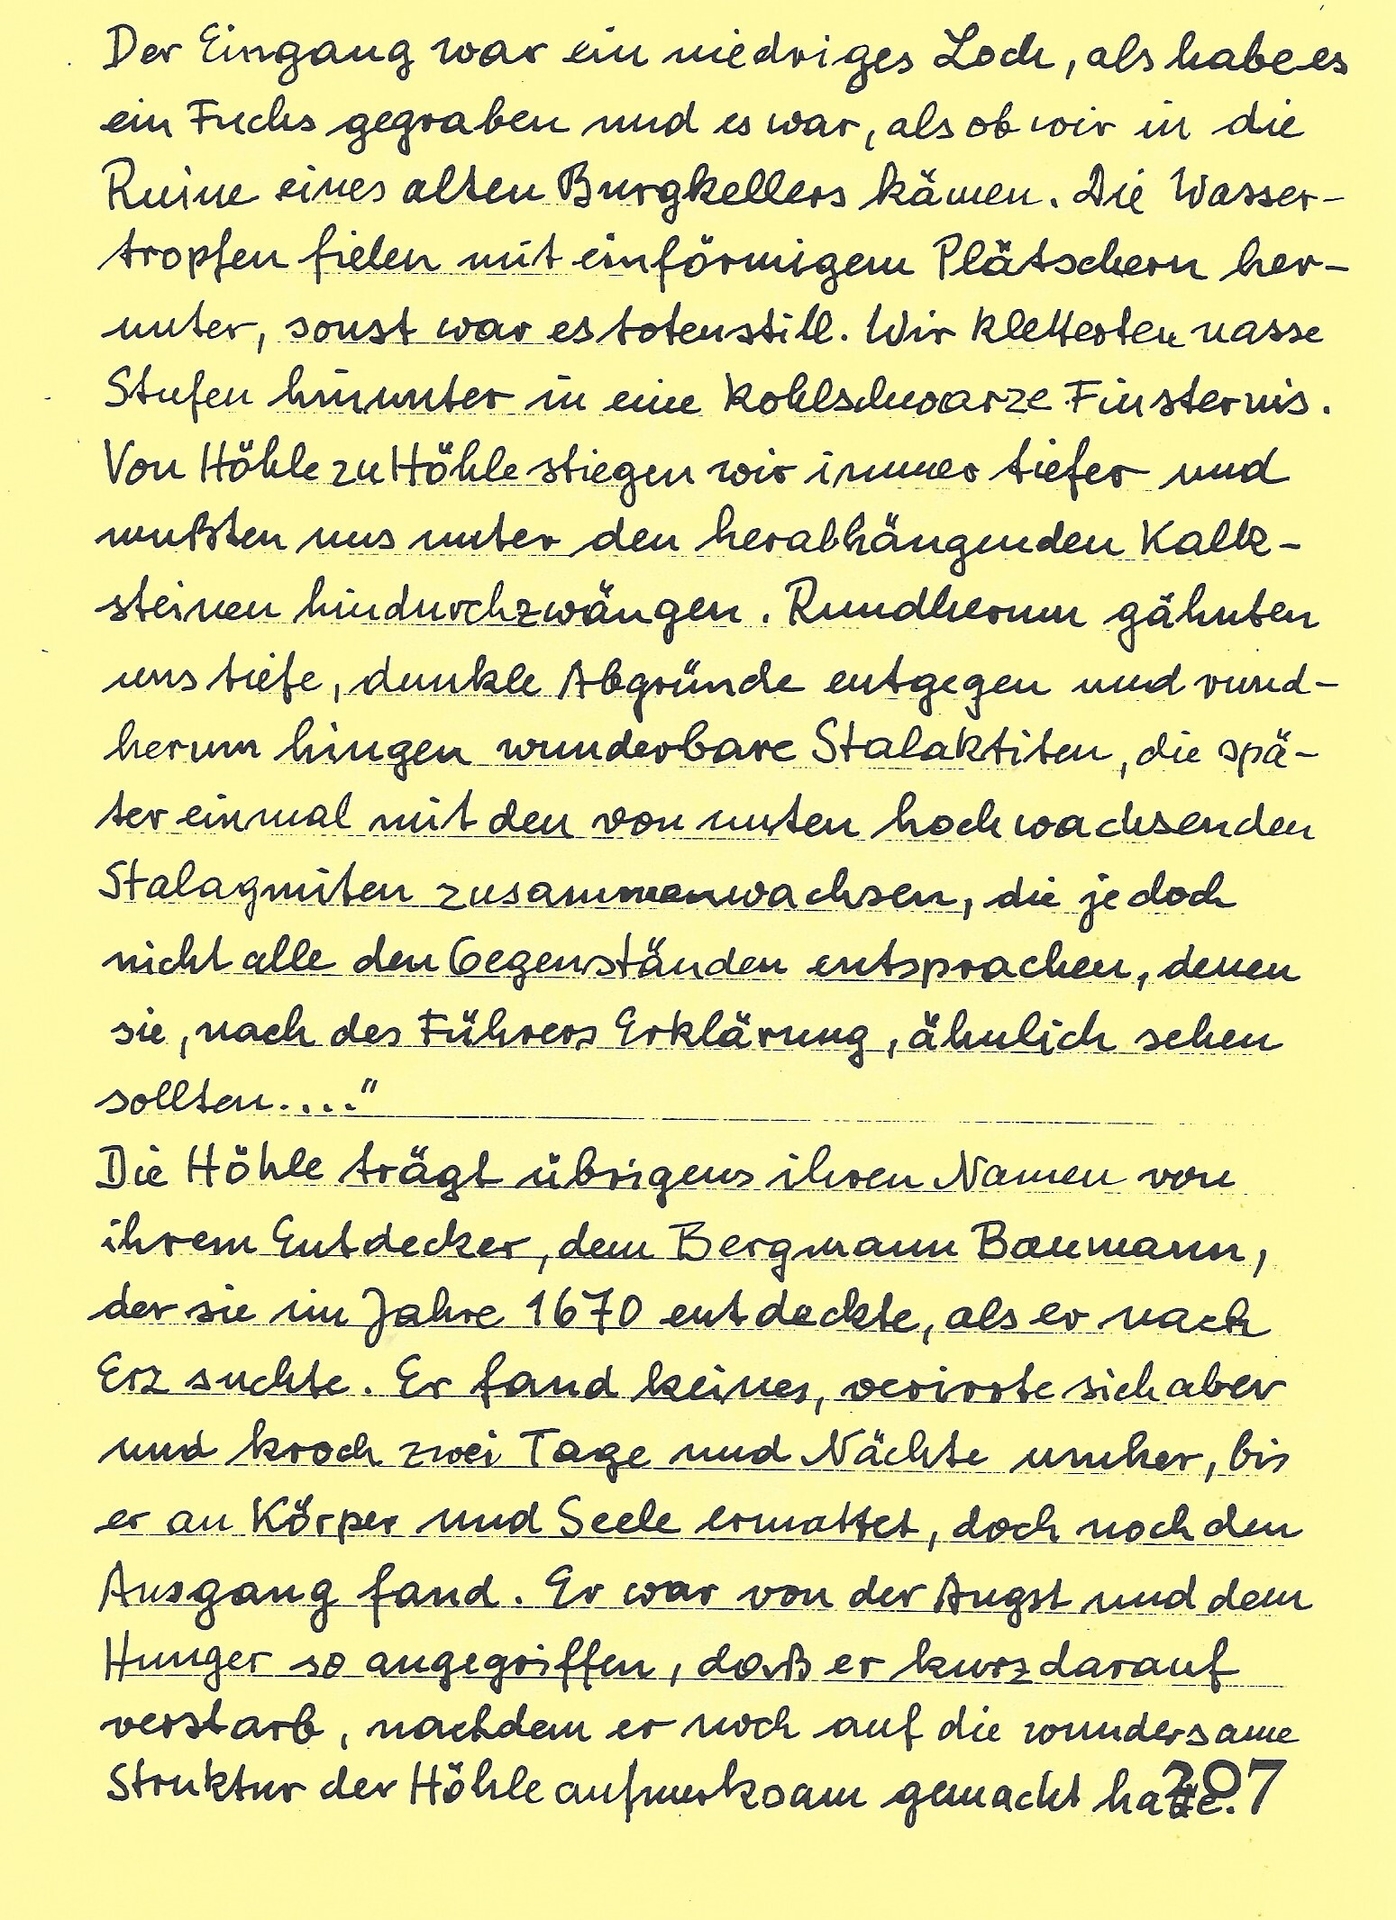 Der Eingang war ein niedriges Loch, als habe es
ein Fuchs gegraben und es war, als ob wir in die
Ruine eines alten Burgkellers kämen. Die Wasser-
tropfen fielen mit einförmigem Plätschern her-
unter, sonst war es totenstill. Wir kletterten nasse
Stufen hinunter in eine kohlschwarze Finsternis.
Von Höhle zu Höhle stiegen wir immer tiefer und
mußten uns unter den herabhängenden Kalk-
steinen hindurchzwängen. Rundherum gähnten
uns tiefe, dunkle Abgründe entgegen und rund-
herum hingen wunderbare Stalaktiten, die spä-
ter einmal mit den von unten hochwachsenden
Stalagmiten zusammenwachsen, die jedoch
nicht alle den Gegenständen entsprachen, denen
sie, nach des Führers Erklärung, ähnlich sehen
sollten...."
Die Höhle trägt übrigens ihren Namen von
ihrem Entdecker, dem Bergmann Baumann,
der sie im Jahre 1670 entdeckte, als er nach
Erz suchte. Er fand keines, verirrte sich aber
und kroch zwei Tage und Nächte umher, bis
er an Körper und Seele ermattet, doch noch den
Ausgang fand. Er war von der Angst und dem
Hunger so angegriffen, daß er kurz darauf
verstarb, nachdem er noch auf die wundersame
Struktur der Höhle aufmerksam gemacht hatte.
207